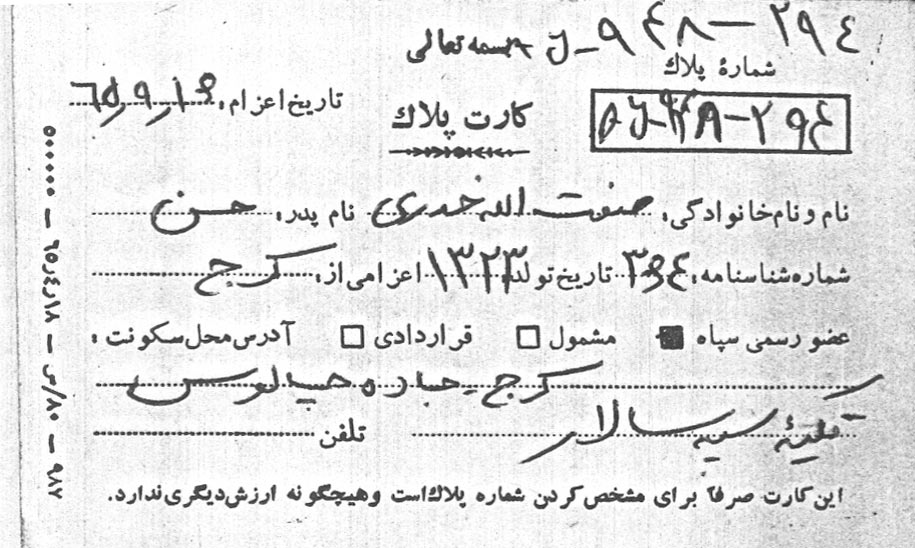 بسمه تعالی
شمارهٔ پلاک
تاریخ اعزام: ۶۵/۹/۱۶
کارت پلاک
نام و نام خانوادگی: صنعت الله خدری نام پدر: حسن
شماره شناسنامه: تاریخ تولد: ۱۳۲۳ اعزامی از: کرج
عضو رسمی سپاه مشمول قراردادی آدرس محل سکونت:
کرج جاده چالوس
تکیهٔ سپه سالار تلفن
این کارت صرفاً برای مشخص کردن شماره پلاک است و هیچگونه ارزش دیگری ندارد.
۹۸۷ – ۸۰/ص – ۶۵٫۴٫۱۸ – ۵۰۰۰۰۰